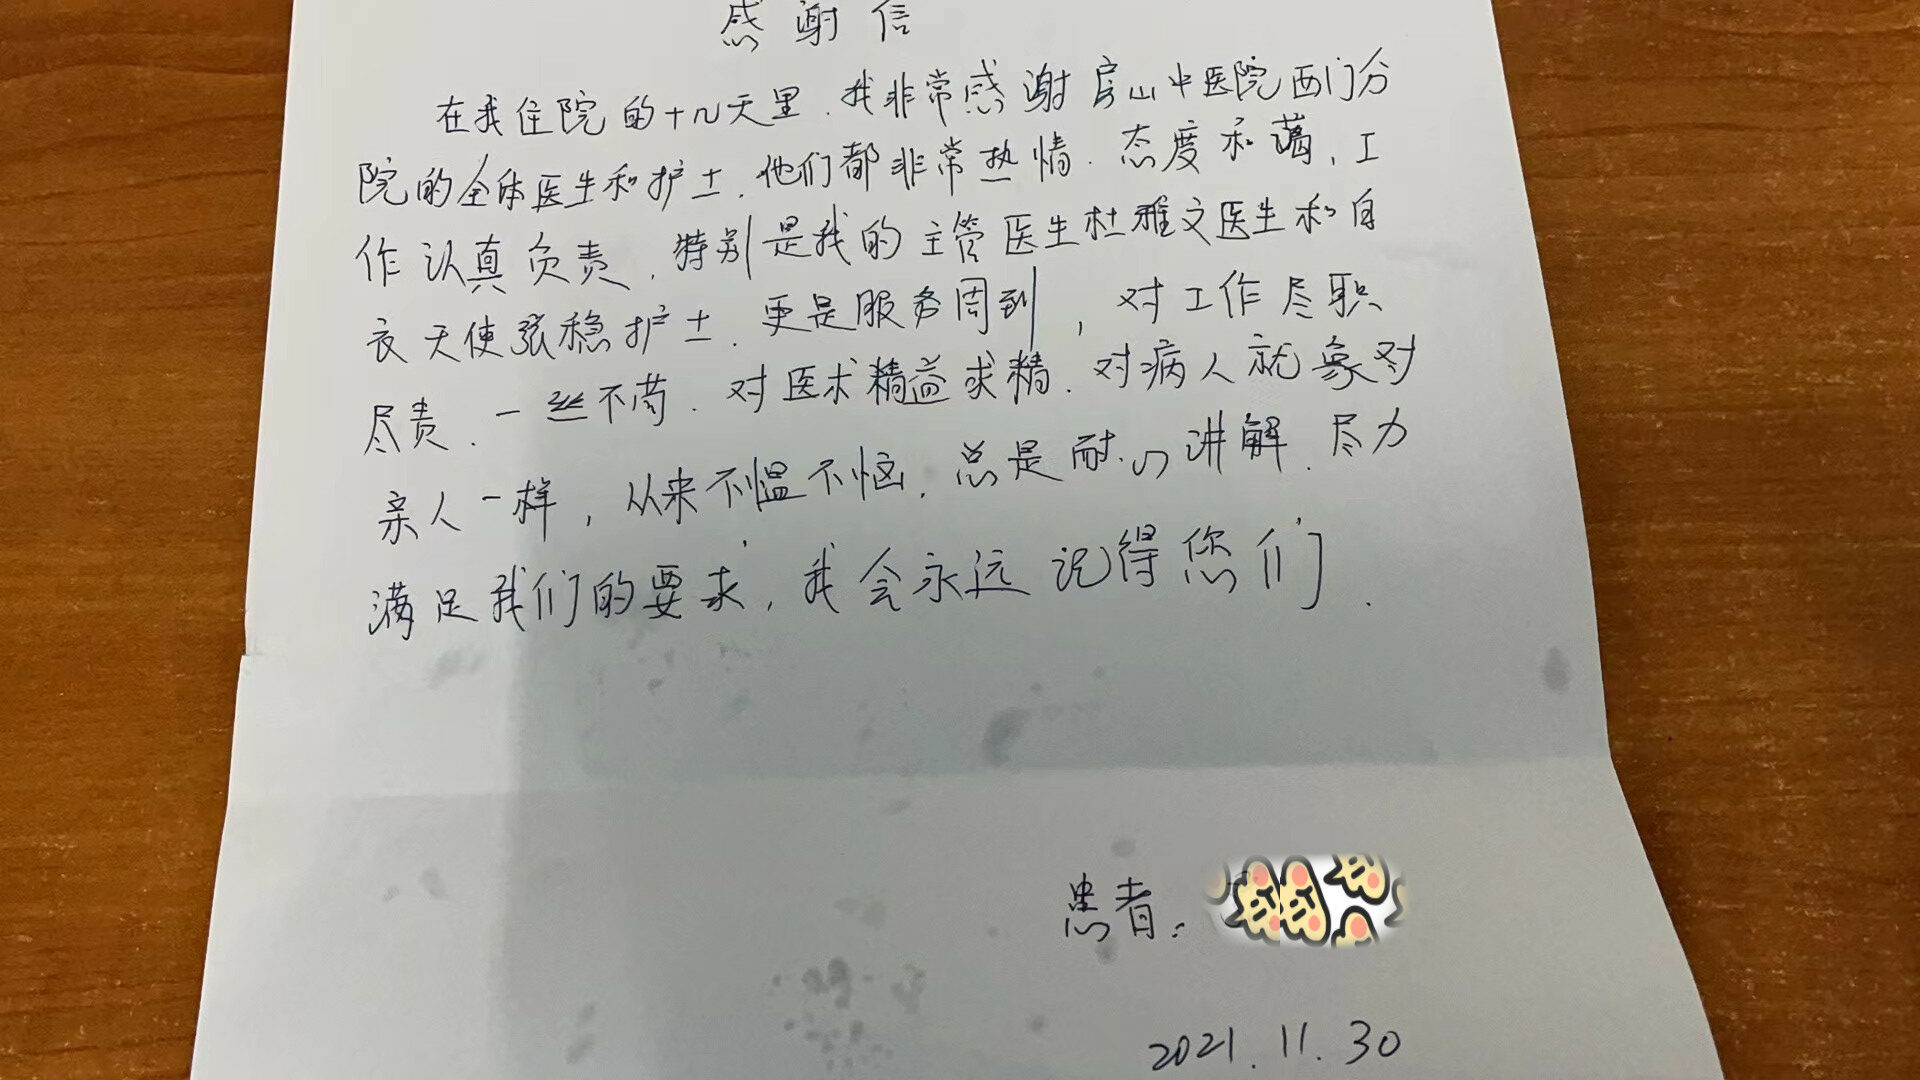 感谢信
在我住院的十几天里.我非常感谢房山中医院西门分
院的全体医生和护士.他们都非常热情.态度和蔼,工
作认真负责.特别是我的主管医生杜雅文医生和白
衣天使张稳护士.更是服务周到,对工作尽职
尽责.一丝不苟.对医术精益求精.对病人就象对
亲人一样,从来不愠不恼.总是耐心讲解.尽力
满足我们的要求,我会永远记得您们.
患者:
2021.11.30